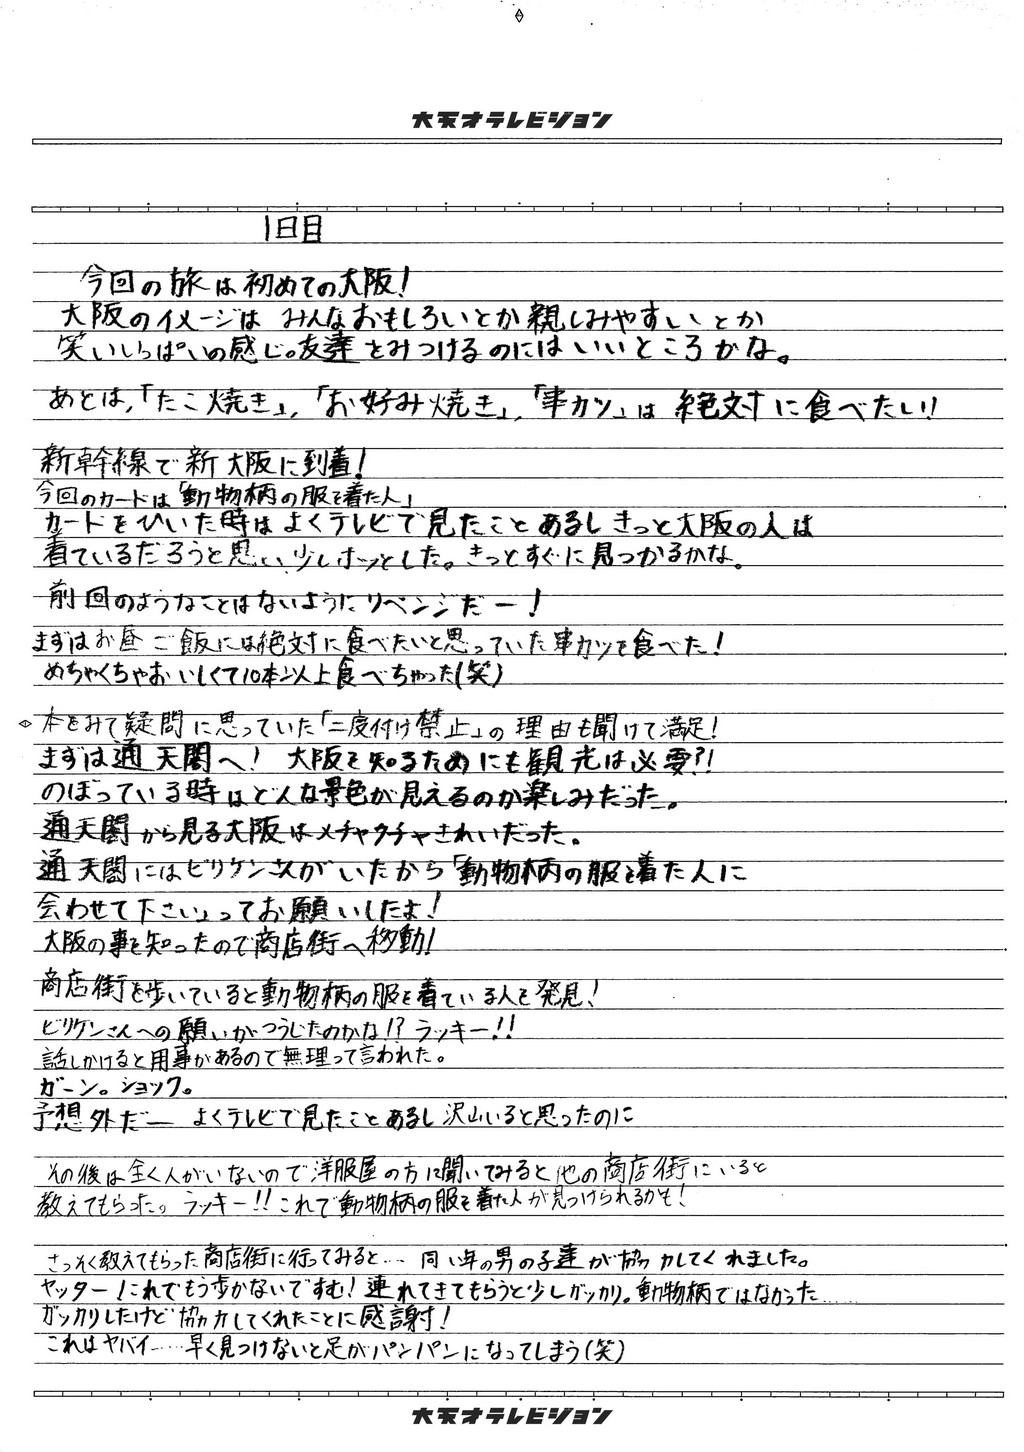 大天才テレビジョン
1日目
今回の旅は初めての大阪!
大阪のイメージは みんなおもしろいとか親しみやすいとか
笑いいっぱいの感じ。友達をみつけるのにはいいところかな。
あとは,「たこ焼き」,「お好み焼き」,「串カツ」は 絶対に食べたい!!
新幹線で新大阪に到着!
今回のカードは「動物柄の服を着た人」
カードをひいた時はよくテレビで見たことあるしきっと大阪の人は
着ているだろうと思い少しホッとした。きっとすぐに見つかるかな。
前回のようなことはないようにリベンジだー!
まずはお昼ご飯には絶対に食べたいと思っていた串カツを食べた!
めちゃくちゃおいしくて10本以上食べちゃった(笑)
本をみて疑問に思っていた「二度付け禁止」の理由も聞けて満足!
まずは通天閣へ! 大阪を知るためにも観光は必要?!
のぼっている時はどんな景色が見えるのか楽しみだった。
通天閣から見る大阪はメチャクチャきれいだった。
通天閣にはビリケンさんがいたから「動物柄の服を着た人に
会わせて下さい」ってお願いしたよ!
大阪の事を知ったので商店街へ移動!
商店街を歩いていると動物柄の服を着ている人を発見!
ビリケンさんへの願いがつうじたのかな!? ラッキー!!
話しかけると用事があるので無理って言われた。
ガーン。ショック。
予想外だー よくテレビで見たことあるし沢山いると思ったのに
その後は全く人がいないので洋服屋の方に聞いてみると他の商店街にいると
教えてもらった。ラッキー!!これで動物柄の服を着た人が見つけられるかも!
さっそく教えてもらった商店街に行ってみると… 同い年の男の子達が協力してくれました。
ヤッター!これでもう歩かないですむ!連れてきてもらうと少しガッカリ。動物柄ではなかった……
ガッカリしたけど協力してくれたことに感謝!
これはヤバイ……早く見つけないと足がパンパンになってしまう(笑)
大天才テレビジョン